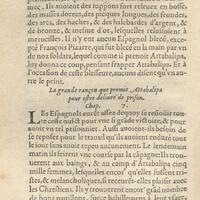 toutes ces riches armeures en bosses,
des masses dorees, des picques longues, des frondes,
des arcs, des haches, & des halebardes d'argent, &
de bronze, & mesme d'or, lesquelles reluisoient à
merueilles. Il n'y eut aucun Espagnol blecé, exce-
pté François Pizarre, qui fut blecé en la main par vn
de noz soldats, lequel comme il prenoit Attabalipa,
luy donna ce coup, pensant frapper Attabalipa. Et à
l'occasion de ceste blessure, aucuns disent qu'vn au-
tre le print.
La grande rançon que promit Attabalipa
pour estre deliuré de prison.
Chap. 7.
LEs Espagnols eurẽt assez dequoy se resiouir tou-
te ceste nuict pour vne si grãde victoire, & pour
auoir vn tel prisonnier. Aussi auoiẽt-ils besoin de
se reposer pour le trauail qu'ils auoient enduré tout
le iour sans auoir mangé aucune chose. Le lende-
main ils s'en vindrent courir par la cãpagne: ils trou-
uerent aux baings, & au camp d'Attabalipa cinq
mille femmes, lesquelles encor' qu'elles fussent tri-
stes, & desolees, se resiouissoient de leur plaisir auec
les Chrestiens. Ils y trouuerent encor vn grand nom-
bre